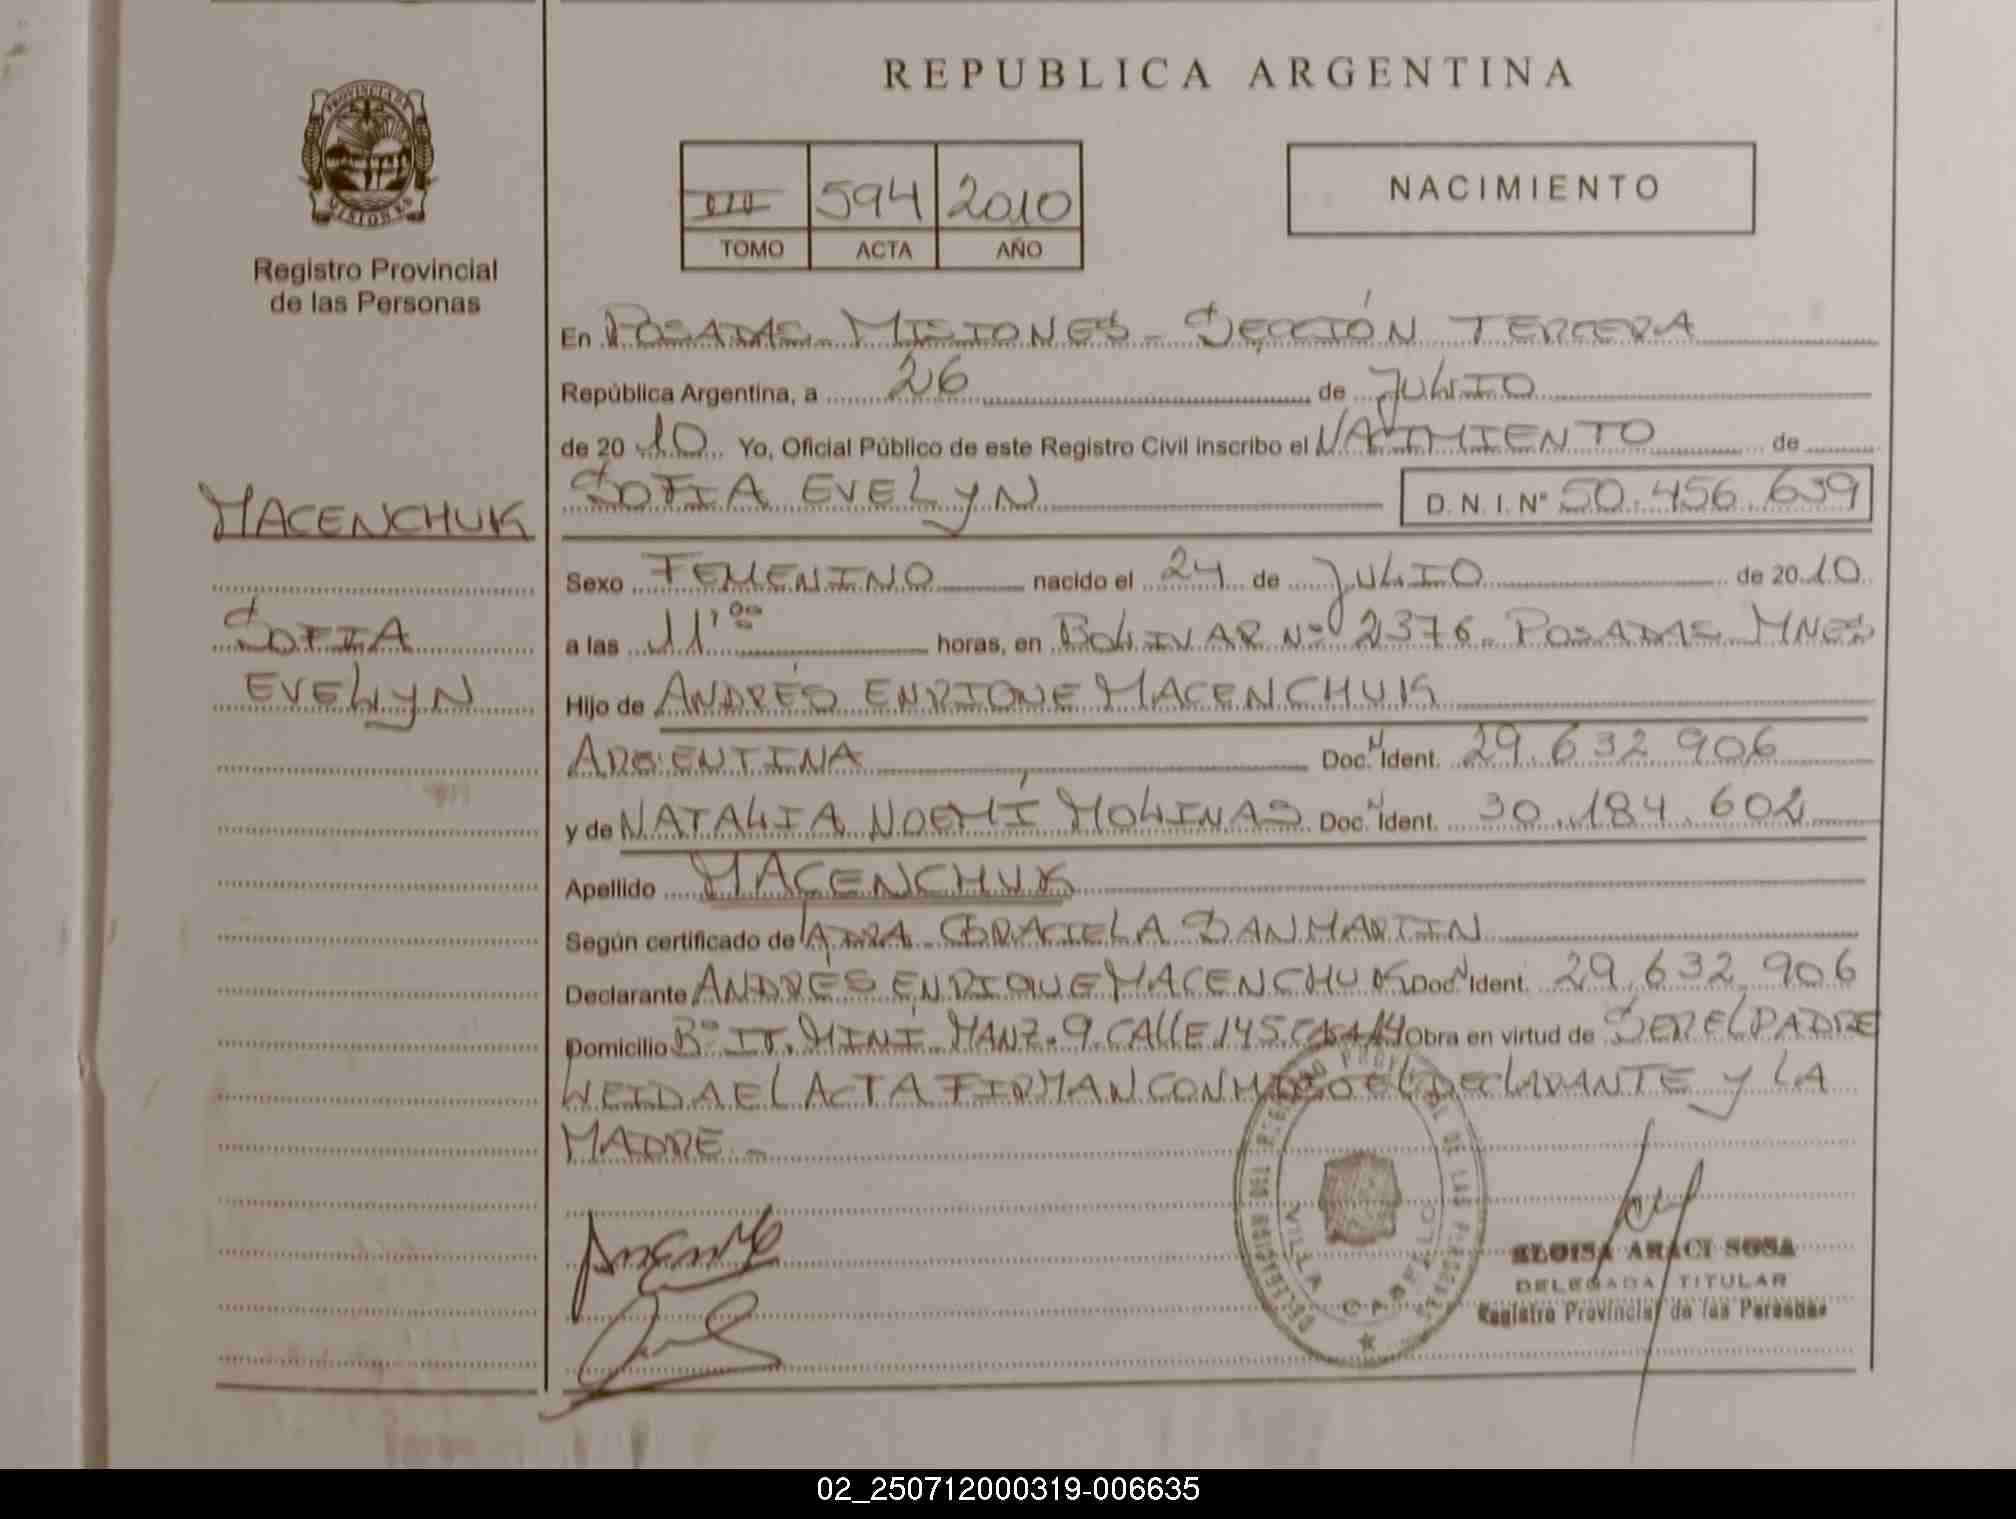 REPUBLICA ARGENTINA
PROVINCIA DE
MISIONES
Registro Provincial
de las Personas
594 2010
TOMO ACTA AÑO
NACIMIENTO
En POSADAS - MISIONES - SECCIÓN TERCERA
República Argentina, a 26 de JULIO
de 2010 Yo, Oficial Público de este Registro Civil inscribo el NACIMIENTO de
SOFIA EVELYN D. N. I. Nº 50.456.639
MACENCHUK
SOFIA
EVELYN
Sexo FEMENINO nacido el 24 de JULIO de 2010
a las 11,00 horas, en BOLIVAR Nº 2376 - POSADAS MNES
Hijo de ANDRÉS ENRIQUE MACENCHUK
ARGENTINA Doc. N Ident. 29.632.906
y de NATALIA NOEMÍ MOLINAS Doc. N Ident. 30.184.602
Apellido MACENCHUK
Según certificado de GRACIELA SANMARTIN
Declarante ANDRÉS ENRIQUE MACENCHUK Doc. N Ident. 29.632.906
Domicilio Bº MINÍ MANZ. 9 CALLE 145 CASA 14 Obra en virtud de SER EL PADRE
LEIDA EL ACTA FIRMAN CONMIGO EL DECLARANTE Y LA
MADRE. -
DELEGACION DEL REGISTRO PROVINCIAL DE LAS PERSONAS
VILLA CABELLO
ELOISA ARACI SOSA
DELEGADA TITULAR
Registro Provincial de las Personas
02_250712000319-006635